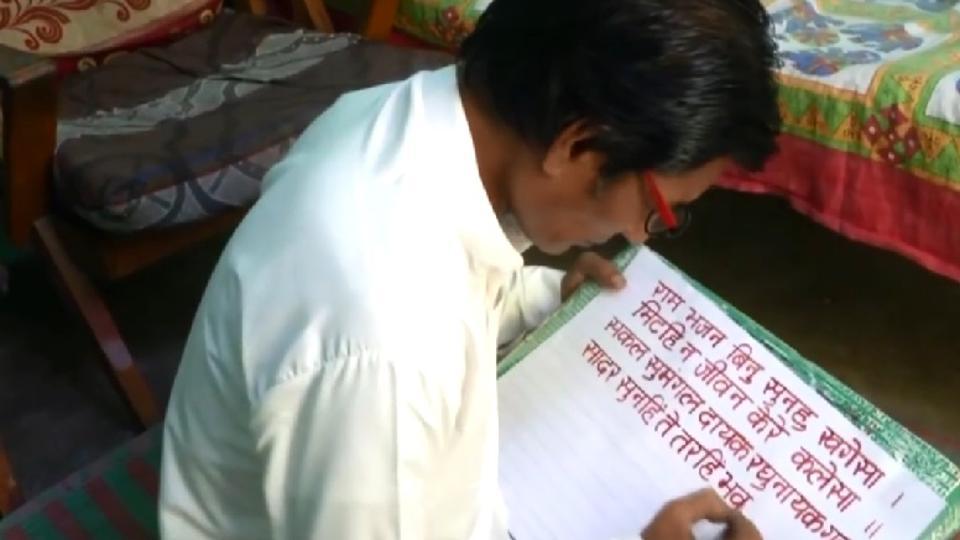 राम भजन बिनु सुनहु खगेसा ।
मिटहि न जीवन केरे कलेसा ॥
सकल सुमगल दायक रघुनायक
सादर सुनहि ते तरहि भव